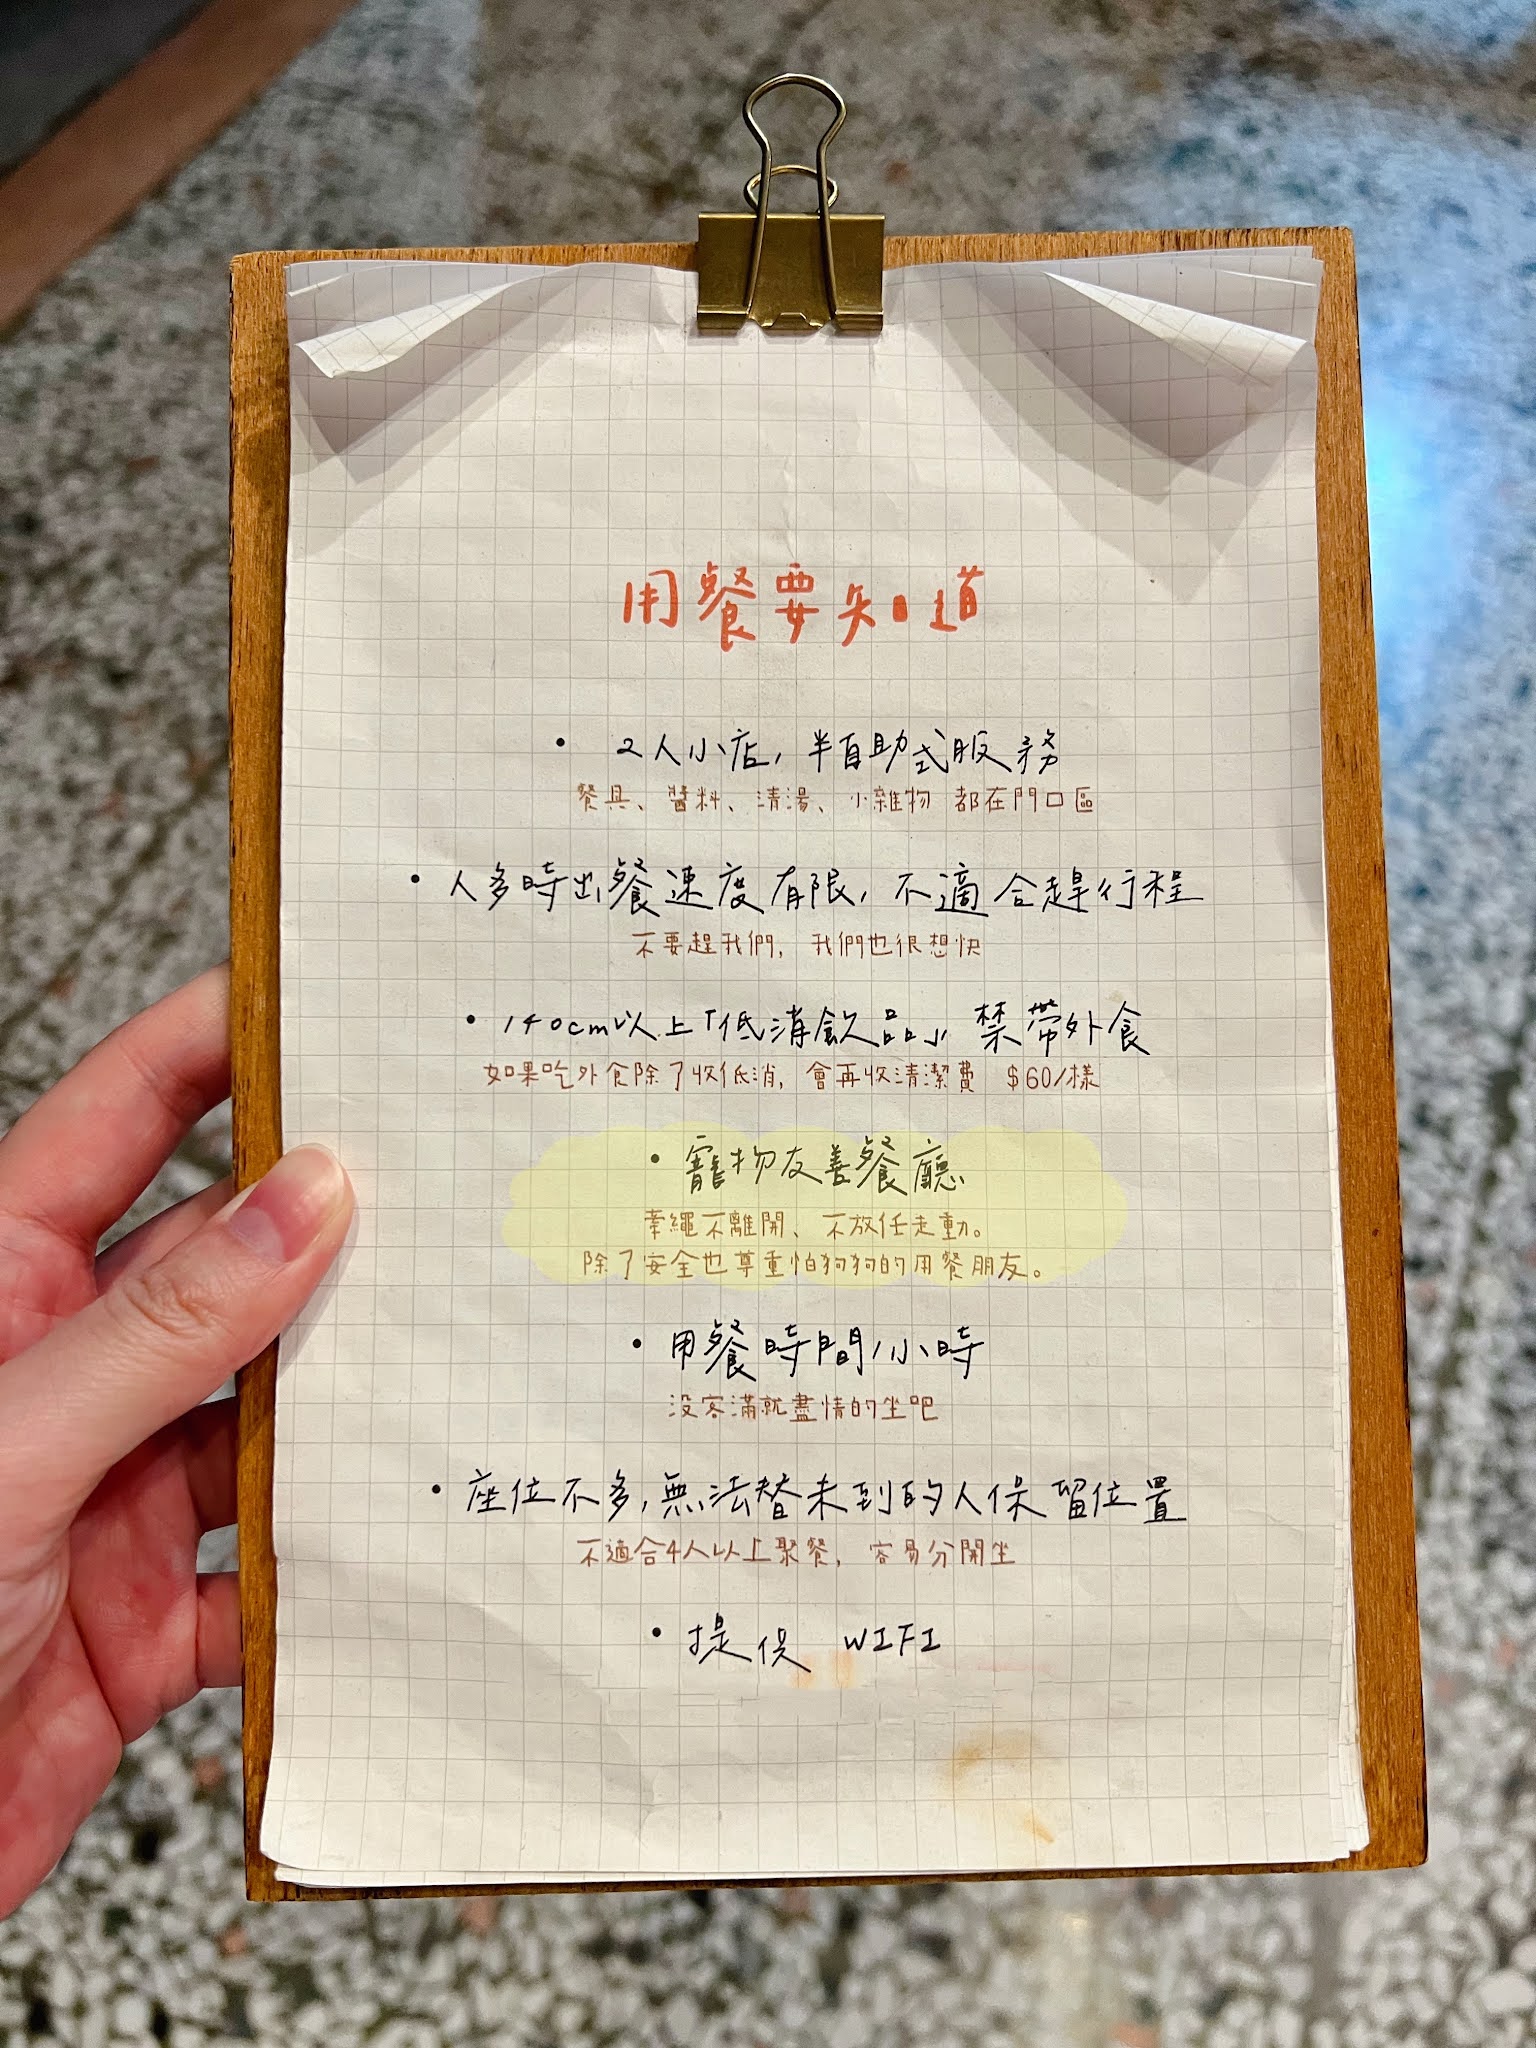 用餐要知道
• 2人小店,半自助式服務
餐具、醬料、清湯、小雜物 都在門口區
• 人多時出餐速度有限,不適合趕行程
不要趕我們,我們也很想快
• 140cm以上「低消飲品」禁帶外食
如果吃外食除了收低消,會再收清潔費 $60/樣
• 寵物友善餐廳
牽繩不離開、不放任走動。
除了安全也尊重怕狗狗的用餐朋友。
• 用餐時間1小時
沒客滿就盡情的坐吧
• 座位不多,無法替未到的人保留位置
不適合4人以上聚餐,容易分開坐
• 提供 WIFI